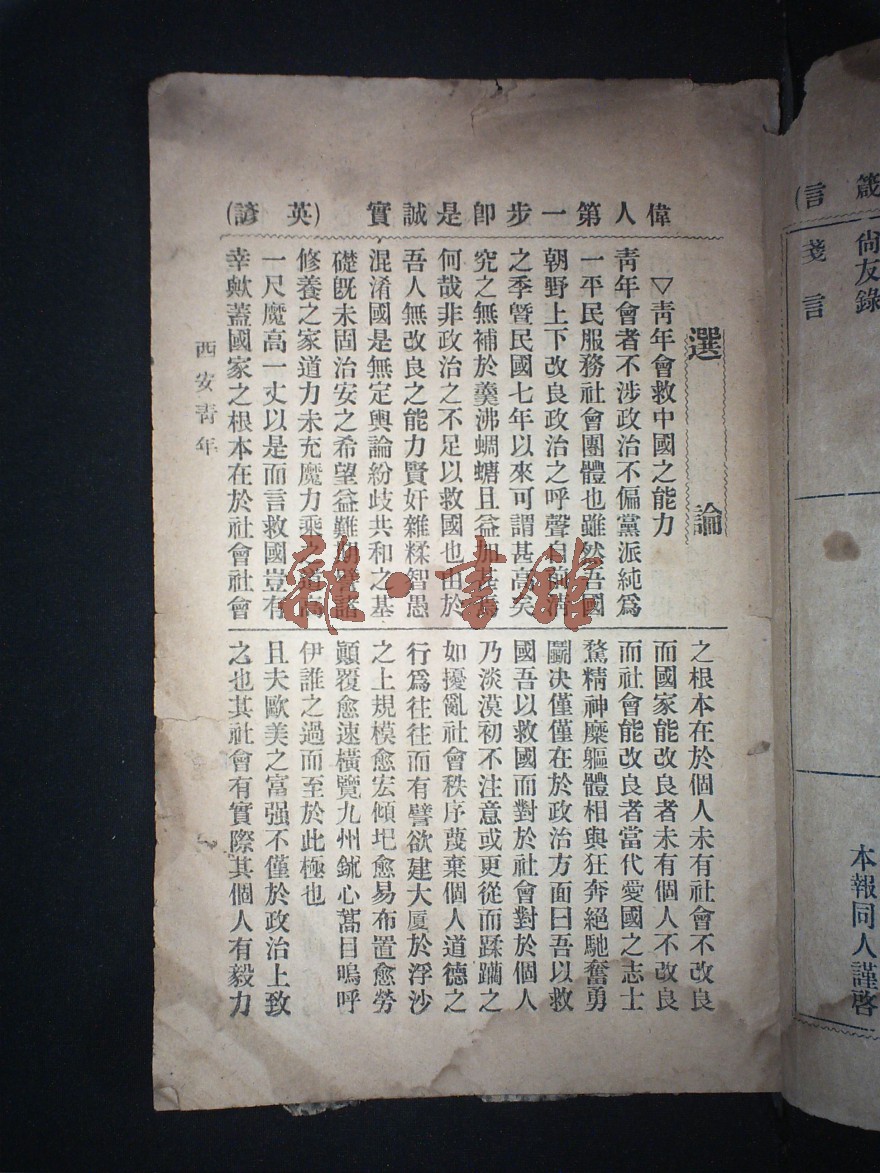 箴言
尙友錄
箋言
本報同人謹啓
偉人第一步卽是誠實(英諺)
選論
▽靑年會救中國之能力
靑年會者不涉政治不偏黨派純爲
一平民服務社會團體也雖然吾國
朝野上下改良政治之呼聲自前淸
之季曁民國七年以來可謂甚高矣
究之無補於羹沸蜩螗且益加甚焉
何哉非政治之不足以救國也由於
吾人無改良之能力賢奸雜糅智愚
混淆國是無定輿論紛歧共和之基
礎旣未固治安之希望益難期譬諸
修養之家道力未充魔力乘之道高
一尺魔高一丈以是而言救國豈有
幸歟蓋國家之根本在於社會社會
之根本在於個人未有社會不改良
而國家能改良者未有個人不改良
而社會能改良者當代愛國之志士
騖精神糜軀體相與狂奔絕馳奮勇
鬭决僅僅在於政治方面曰吾以救
國吾以救國而對於社會對於個人
乃淡漠初不注意或更從而蹂躪之
如擾亂社會秩序蔑棄個人道德之
行爲往往而有譬欲建大厦於浮沙
之上規模愈宏傾圮愈易布置愈勞
顚覆愈速橫覽九州鉥心蒿目嗚呼
伊誰之過而至於此極也
且夫歐美之富强不僅於政治上致
之也其社會有實際其個人有毅力
西安靑年
雜·書館